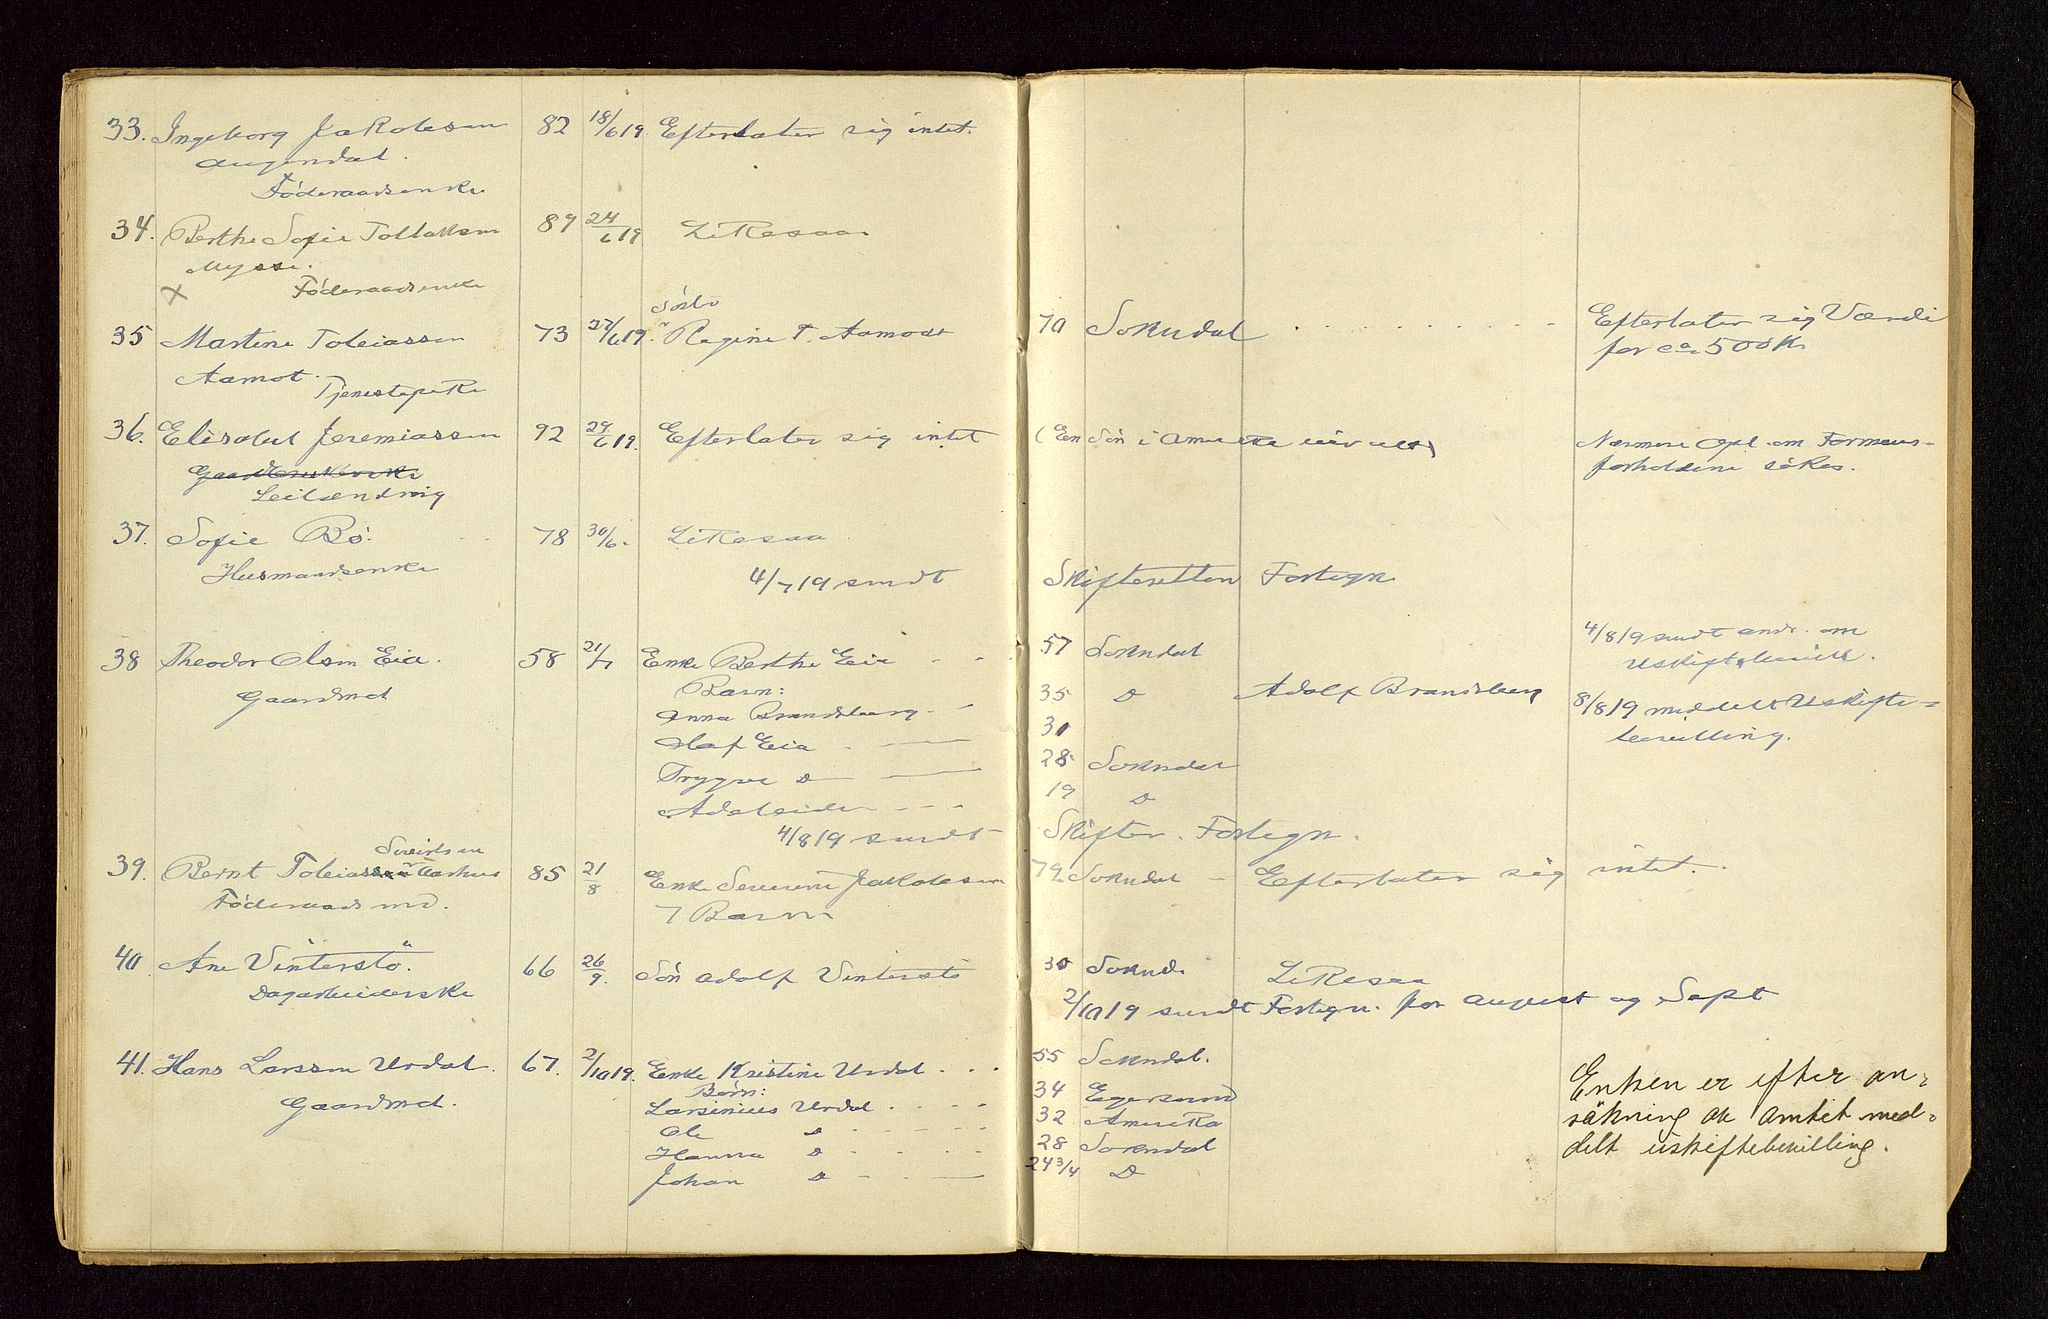 33. Ingeborg Jakobsen 82 18/6 19. Efterlater sig intet.
Augendal.
Föderaadsenke
34. Berthe Sofie Tollaksen 89 24/6 19 Likesaa
Mysse.
x Föderaadsenke
Söster
35 Martine Tobiassen 73 27/6 19. Regine T. Aamodt 70 Sokndal . . . . . . . . . . Efterlater sig Værdi
Aamot. for ca 500 Kr
Tjenestepike
36. Elisabet Jeremiassen 92 29/6 19. Efterlater sig intet (En Sön i Amerika Nærmere Opl. om Formues-
forholdene sökes.
37. Sofie Bö. 78 30/6. Likesaa
Husmandsenke
4/7 19 sendt Skifteretten Fortegn
38 Theodor Olsen Eia. 58 21/7 Enke Berthe Eia - - 57 Sokndal 4/8 19 sendt andr. om
Uskiftebevill.
Gaardmd Barn: 35 D Adolf Brandsberg 8/8 19 meddelt Uskifte-
Anna Brandsberg - - 31 bevilling.
Olaf Eia - — 28 Sokndal
Trygve D — 19 D
Adeleide - - -
4/8 19 sendt Skifter. Fortegn.
Sivertsen
39. Bernt Tobiassen Aarhus 85 21/8 Enke Severine Jakobsen 79 Sokndal - Efterlater sig intet.
Föderaadsmd. 7 Barn
40. Ane Vinterstö. 66 26/9. Sön Adolf Vinterstö 30 Soknd. Likesaa
Dagarbeiderske
2/10 19 sendt Fortegn. for August og Sept
41. Hans Larssen Urdal. 67. 2/10 19. Enke Kristine Urdal . . . 55 Sokndal.
Gaardmd. Børn:
Larsinius Urdal . - - - 34 Egersund Enken er efter an-
Ole D - - - - 32 Amerika søkning av Amtet med-
Hanna D - - - 28 Sokndal delt uskiftebevilling.
Johan D - - — 24 3/4 D